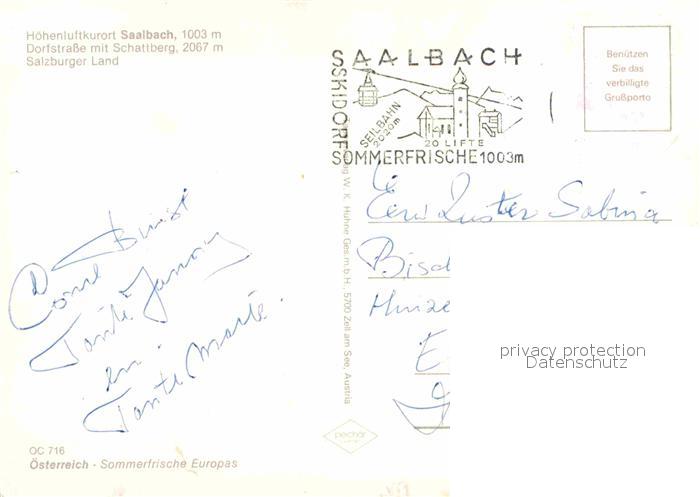 Höhenluftkurort Saalbach, 1003 m
Dorfstraße mit Schattberg, 2067 m
Salzburger Land
SAALBACH
SKIDORF
SEILBAHN
2020m
20 LIFTE
SOMMERFRISCHE 1003m
Benützen
Sie das
verbilligte
Grußporto
Sabina
Tante
en.
Tante
W. K. Hühne Ges.m.b.H., 5700 Zell am See, Austria
privacy protection
Datenschutz
pechar
OC 716
Österreich - Sommerfrische Europas